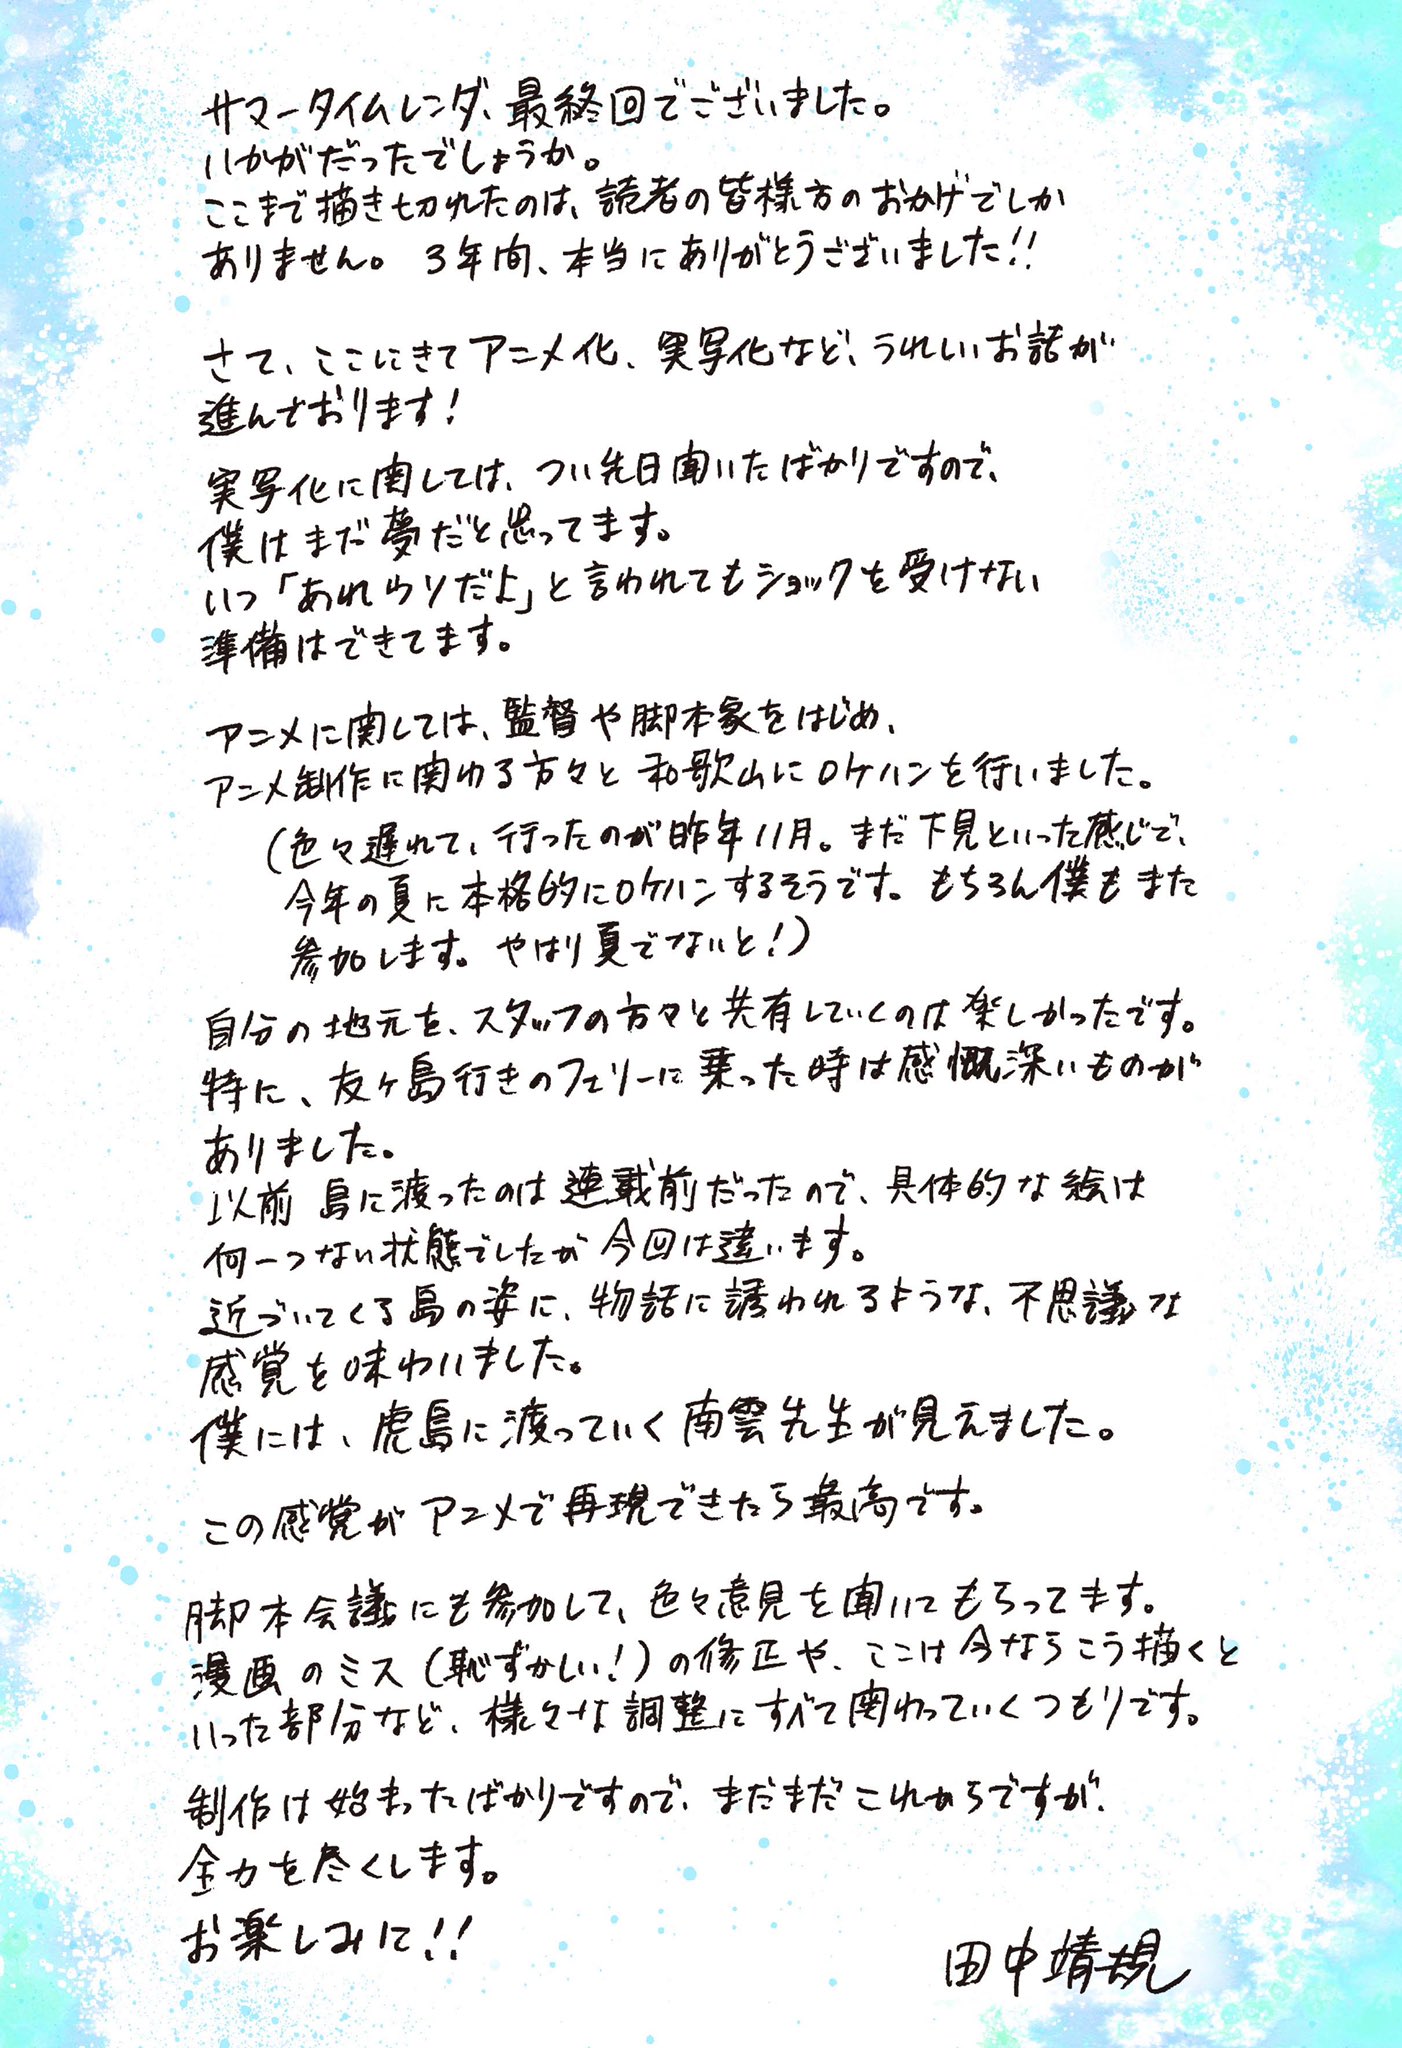 サマータイムレンダ、最終回でございました。
いかがだったでしょうか。
ここまで描き切れたのは、読者の皆様方のおかげでしか
ありません。 3年間、本当にありがとうございました!!
さて、ここにきてアニメ化、実写化など、うれしいお話が
進んでおります!
実写化に関しては、つい先日聞いたばかりですので、
僕はまだ夢だと思ってます。
いつ「あれウソだよ」と言われてもショックを受けない
準備はできてます。
アニメに関しては、監督や脚本家をはじめ、
アニメ制作に関わる方々と和歌山にロケハンを行いました。
(色々遅れて、行ったのが昨年11月。まだ下見といった感じで、
今年の夏に本格的にロケハンするそうです。もちろん僕もまた
参加します。やはり夏でないと!)
自分の地元を、スタッフの方々と共有していくのは楽しかったです。
特に、友ヶ島行きのフェリーに乗った時は感慨深いものが
ありました。
以前島に渡ったのは連載前だったので、具体的な絵は
何一つない状態でしたが今回は違います。
近づいてくる島の姿に、物語に誘われるような、不思議な
感覚を味わいました。
僕には、虎島に渡っていく南雲先生が見えました。
この感覚がアニメで再現できたら最高です。
脚本会議にも参加して、色々意見を聞いてもらってます。
漫画のミス(恥ずかしい!)の修正や、ここは今ならこう描くと
いった部分など、様々な調整にすべて関わっていくつもりです。
制作は始まったばかりですので、まだまだこれからですが、
全力を尽くします。
お楽しみに!!
田中靖規